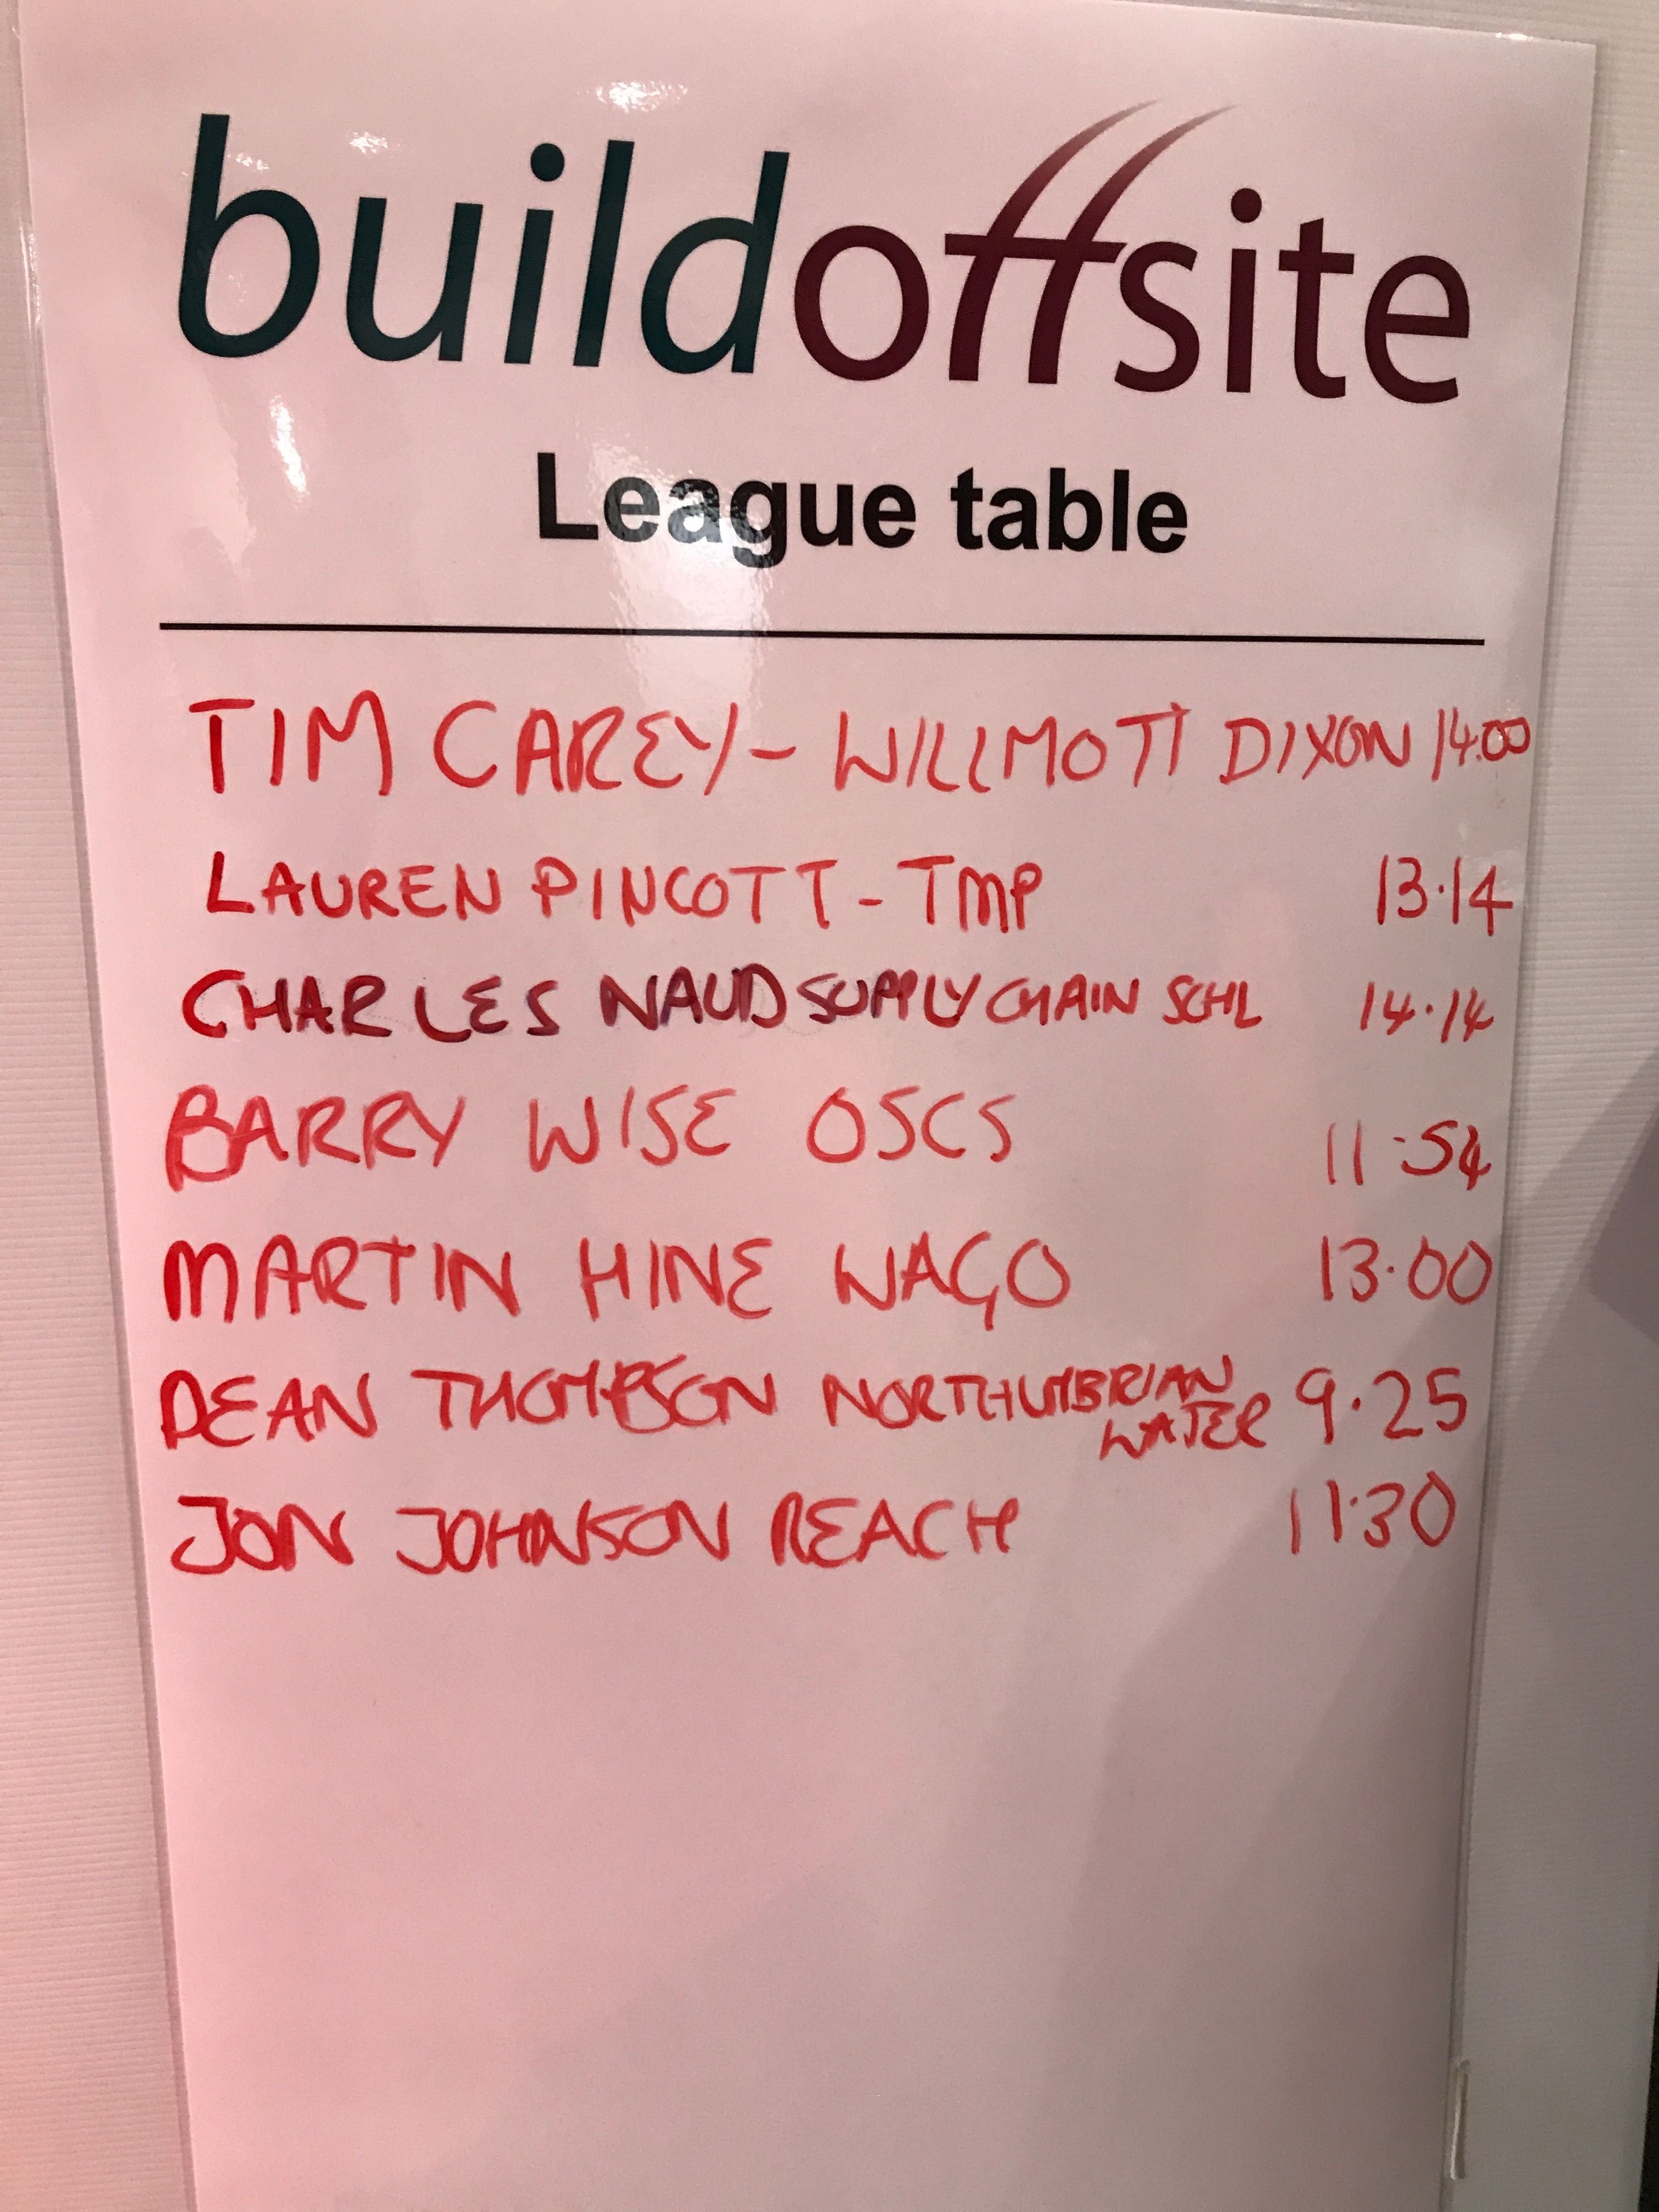 buildoffsite
League table
TIM CAREY - WILLMOTT DIXON 14.00
LAUREN PINCOTT - TMP 13.14
CHARLES NAUD SUPPLY CHAIN SCHL 14.14
BARRY WISE OSCS 11.54
MARTIN HINE WAGO 13.00
DEAN THOMPSON NORTHUMBRIAN WATER 9.25
JON JOHNSON REACH 11.30